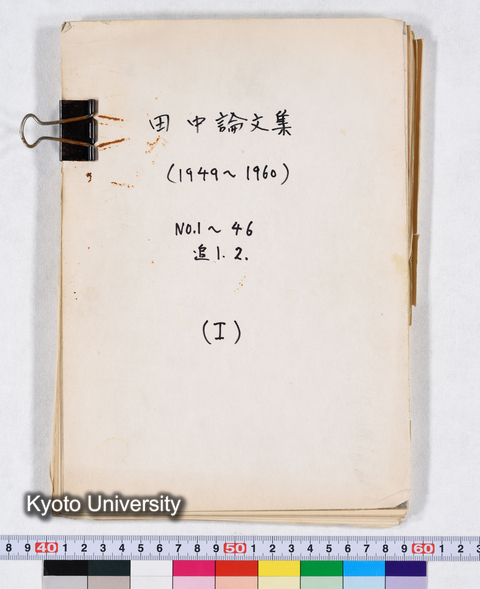 田中論文集
(1949～1960)
NO.1～46
追1.2.
(I)
Kyoto University
8 9 40 1 2 3 4 5 6 7 8 9 50 1 2 3 4 5 6 7 8 9 60 1 2 3